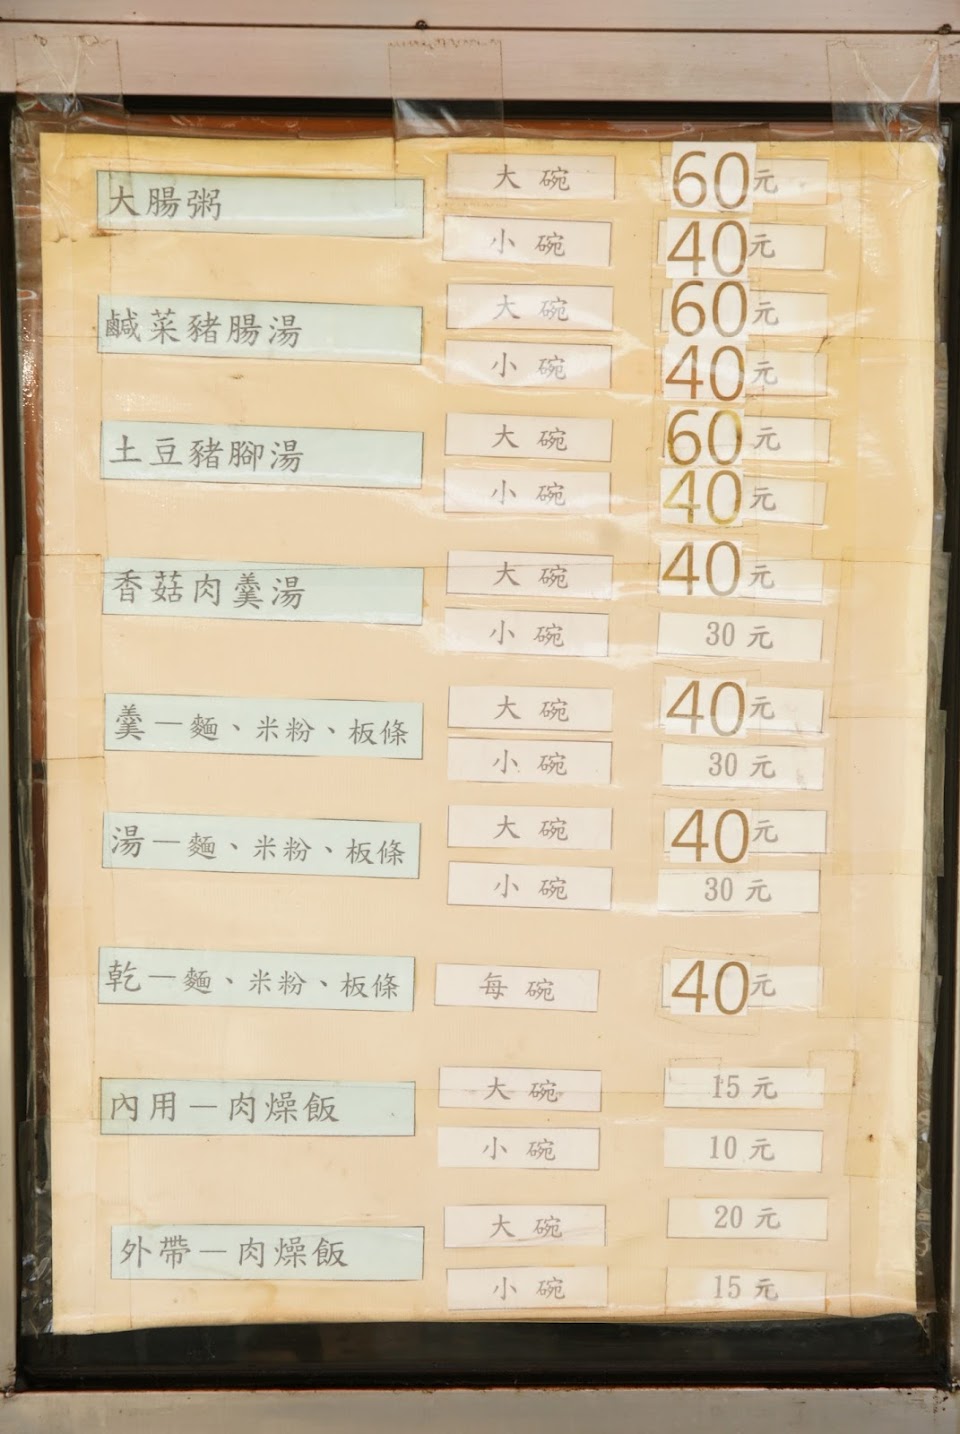 大腸粥 大碗 60元
小碗 40元
鹹菜豬腸湯 大碗 60元
小碗 40元
土豆豬腳湯 大碗 60元
小碗 40元
香菇肉羹湯 大碗 40元
小碗 30元
羹－麵、米粉、板條 大碗 40元
小碗 30元
湯－麵、米粉、板條 大碗 40元
小碗 30元
乾－麵、米粉、板條 每碗 40元
內用－肉燥飯 大碗 15元
小碗 10元
外帶－肉燥飯 大碗 20元
小碗 15元